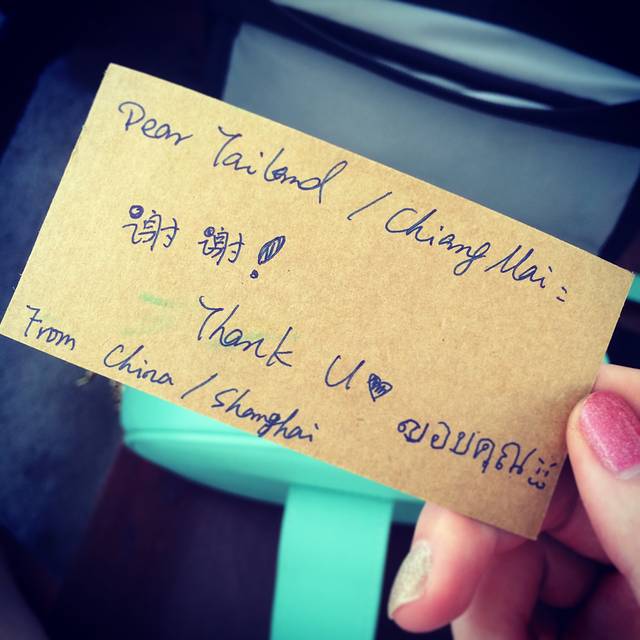 Dear Tailand / Chiang Mai:
谢谢!
Thank U♥
ขอบคุณ
From China / Shanghai